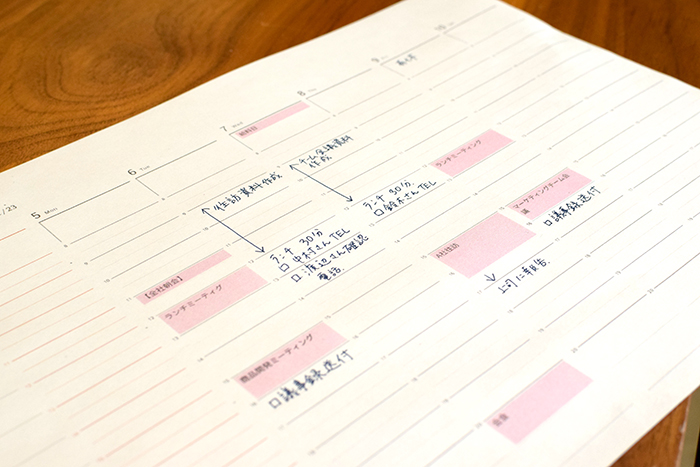 /23
5 Mon
6 Tue
7 Wed
8 Thu
9 Fri
10
給料日
往訪資料作成
チーム会議資料
作成
ランチ 30分
口 中村さん TEL
口 渡辺さん確認
電話
ランチ 30分
口 鈴木さん TEL
ランチミーティング
【全社朝会】
ランチミーティング
商品開発ミーティング
口 議事録送付
A社往訪
上司に報告
マーケティングチーム会
議
口 議事録送付
会食